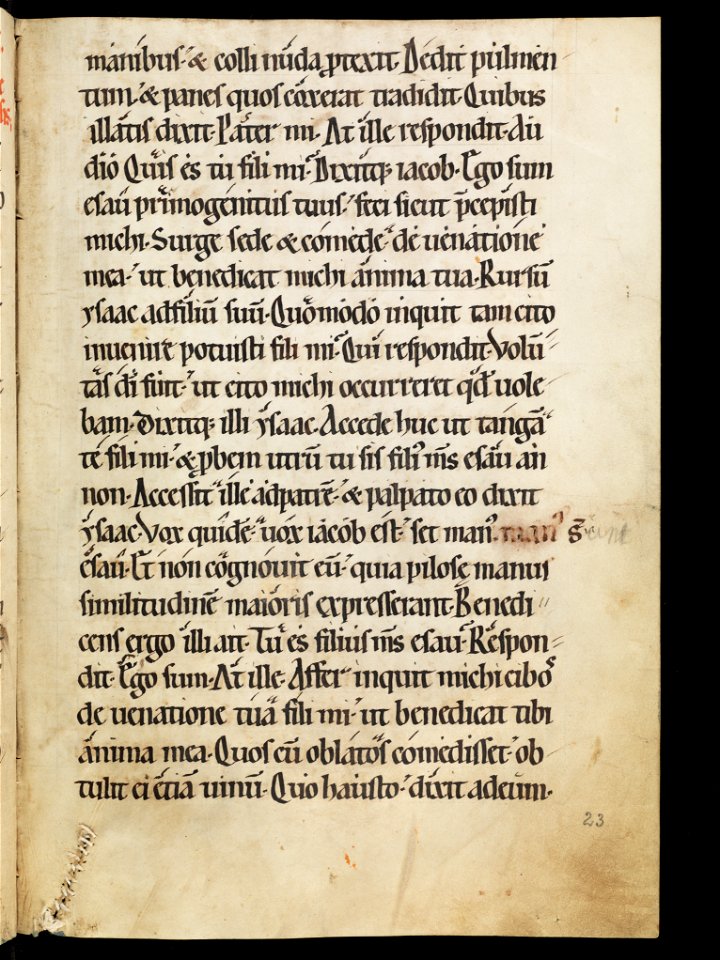 manibus. & colli nuda ꝓtexit. Dedit pulmen
tum. & panes quos coxerat tradidit. Quibus
illatis dixit. Pater mi. At ille respondit. Au
dio. Quis es tu fili mi. Dixitq; iacob. Ego sum
esau primogenitus tuus. feci sicut p̄cepisti
michi. Surge sede & comede de uenatione
mea. ut benedicat michi anima tua. Rursū
ysaac ad filiū suū. Quomodo inquit tam cito
inuenire potuisti fili mi. Qui respondit. Volū
tas dī fuit. ut cito michi occurreret qđ uole
bam. Dixitq; illi ysaac. Accede huc ut tangā
te fili mi. & ꝓbem utrū tu sis fili᾽ m̄s esau an
non. Accessit ille ad patrē. & palpato eo dixit
ysaac. Vox quidē uox iacob est. set man᾽ man᾽ s̄
esau. Et non cognouit eū. quia pilose manus
similitudinē maioris expresserant. Benedi
cens ergo illi ait. Tu es filius m̄s esau. Respon
dit. Ego sum. At ille. Affer inquit michi cibos
de uenatione tua fili mi. ut benedicat tibi
anima mea. Quos cū oblatos comedisset. ob
tulit ei etiā uinū. Quo hausto. dixit ad eum.
23